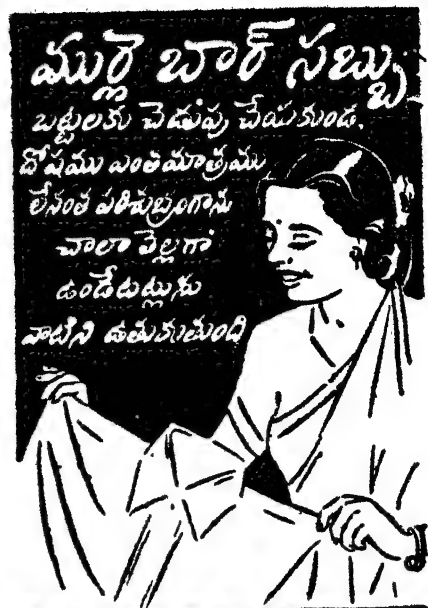 ముర్లె బార్ సబ్బు
బట్టలకు చెడుపు చేయకుండ,
దోషము ఎంతమాత్రము
లేనంత పరిశుభ్రంగాను
చాలా తెల్లగా
ఉండేటట్లును
వాటిని ఉతుకుతుంది